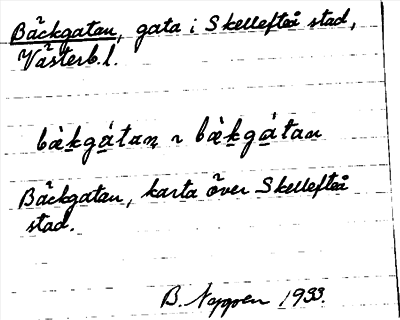 Bäckgatan, gata i Skellefteå stad,
Västerb.l.
bàkgátan ~ bàkgátan
Bäckgatan, karta över Skellefteå
stad.
B. 1933.